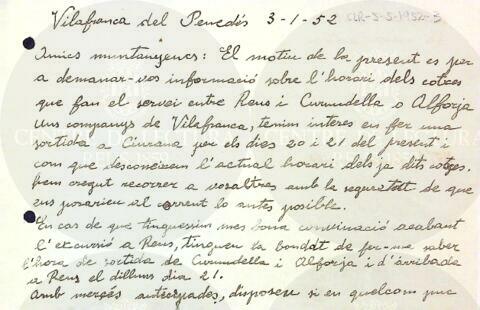 Vilafranca del Penedès 3-1-52
CLR-S-5-1952-3
Amics muntanyencs: El motiu de la present es per
a demanar-vos informació sobre l'horari dels cotxes
que fan el servei entre Reus i Curnudella o Alforja
Uns companys de Vilafranca, tenim interes en fer una
sortida a Ciurana per els dies 20 i 21 del present i
com que desconeixem l'actual horari dels ja dits cotges.
hem cregut recorrer a vosaltres amb la seguretat de que
ens posarieu al corrent lo antes posible.
En cas de que tinguessiu mes bona convinació acabant
l'excursió a Reus, tingueu la bondat de fer-me saber
l'hora de sortida de Curnudella i Alforja i d'arribada
a Reus el dilluns dia 21.
Amb mercés anticipades, disposeu si en quelcom puc